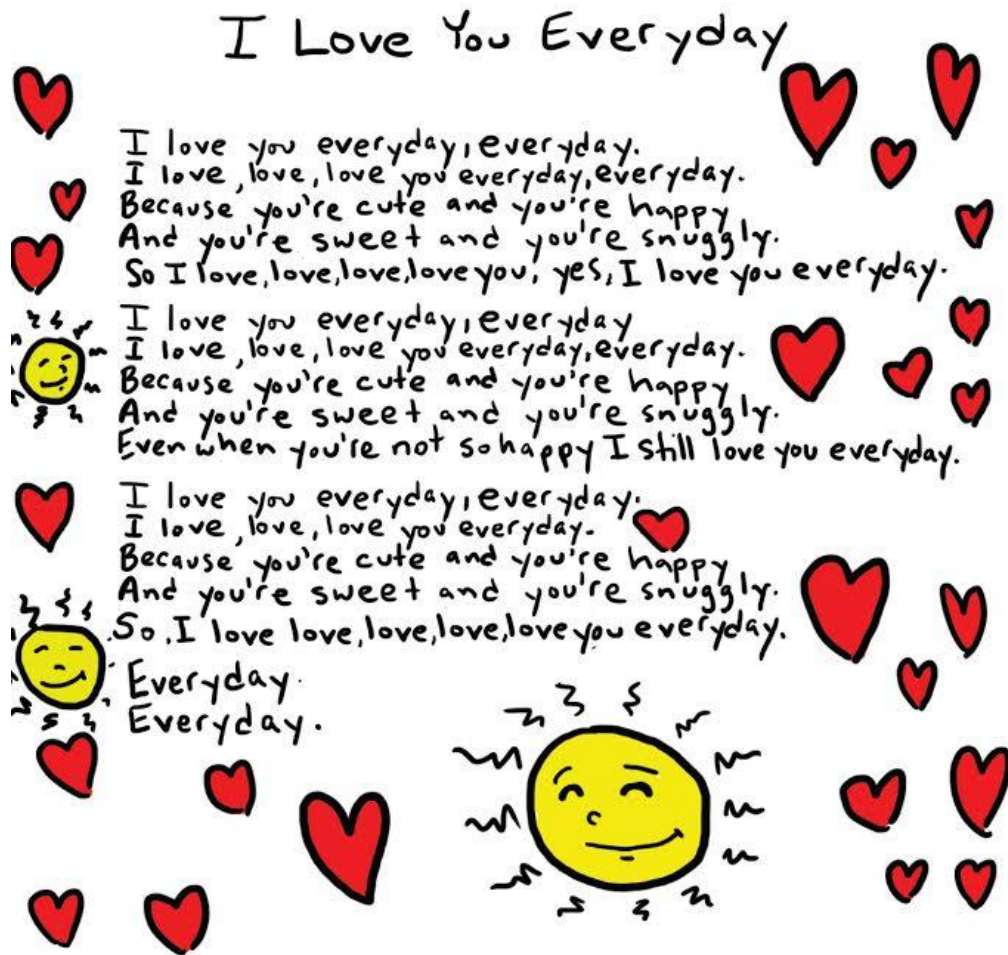 I Love You Everyday
I love you everyday, everyday.
I love, love, love you everyday, everyday.
Because you're cute and you're happy
And you're sweet and you're snuggly.
So I love, love, love, love you, yes, I love you everyday.
I love you everyday, everyday
I love, love, love you everyday, everyday.
Because you're cute and you're happy
And you're sweet and you're snuggly.
Even when you're not so happy I still love you everyday.
I love you everyday, everyday.
I love, love, love you everyday.
Because you're cute and you're happy
And you're sweet and you're snuggly.
So, I love love, love, love, love you everyday.
Everyday.
Everyday.